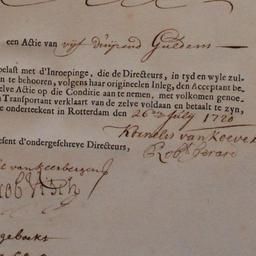 een Actie van vijf duijzend Guldens
belast met d'Inroepinge, die de Directeurs, in tyd en wyle zul-
n te behooren, volgens haar origineelen Inleg, den Acceptant be-
zelve Actie op die Conditie aan te nemen, met volkomen genoe-
Transportant verklaart van de zelve voldaan en betaalt te zyn,
e onderteekent in Rotterdam den 26e July 1720
Kornelis van
Robt
esent d'ondergeschreve Directeuren,
van
cob